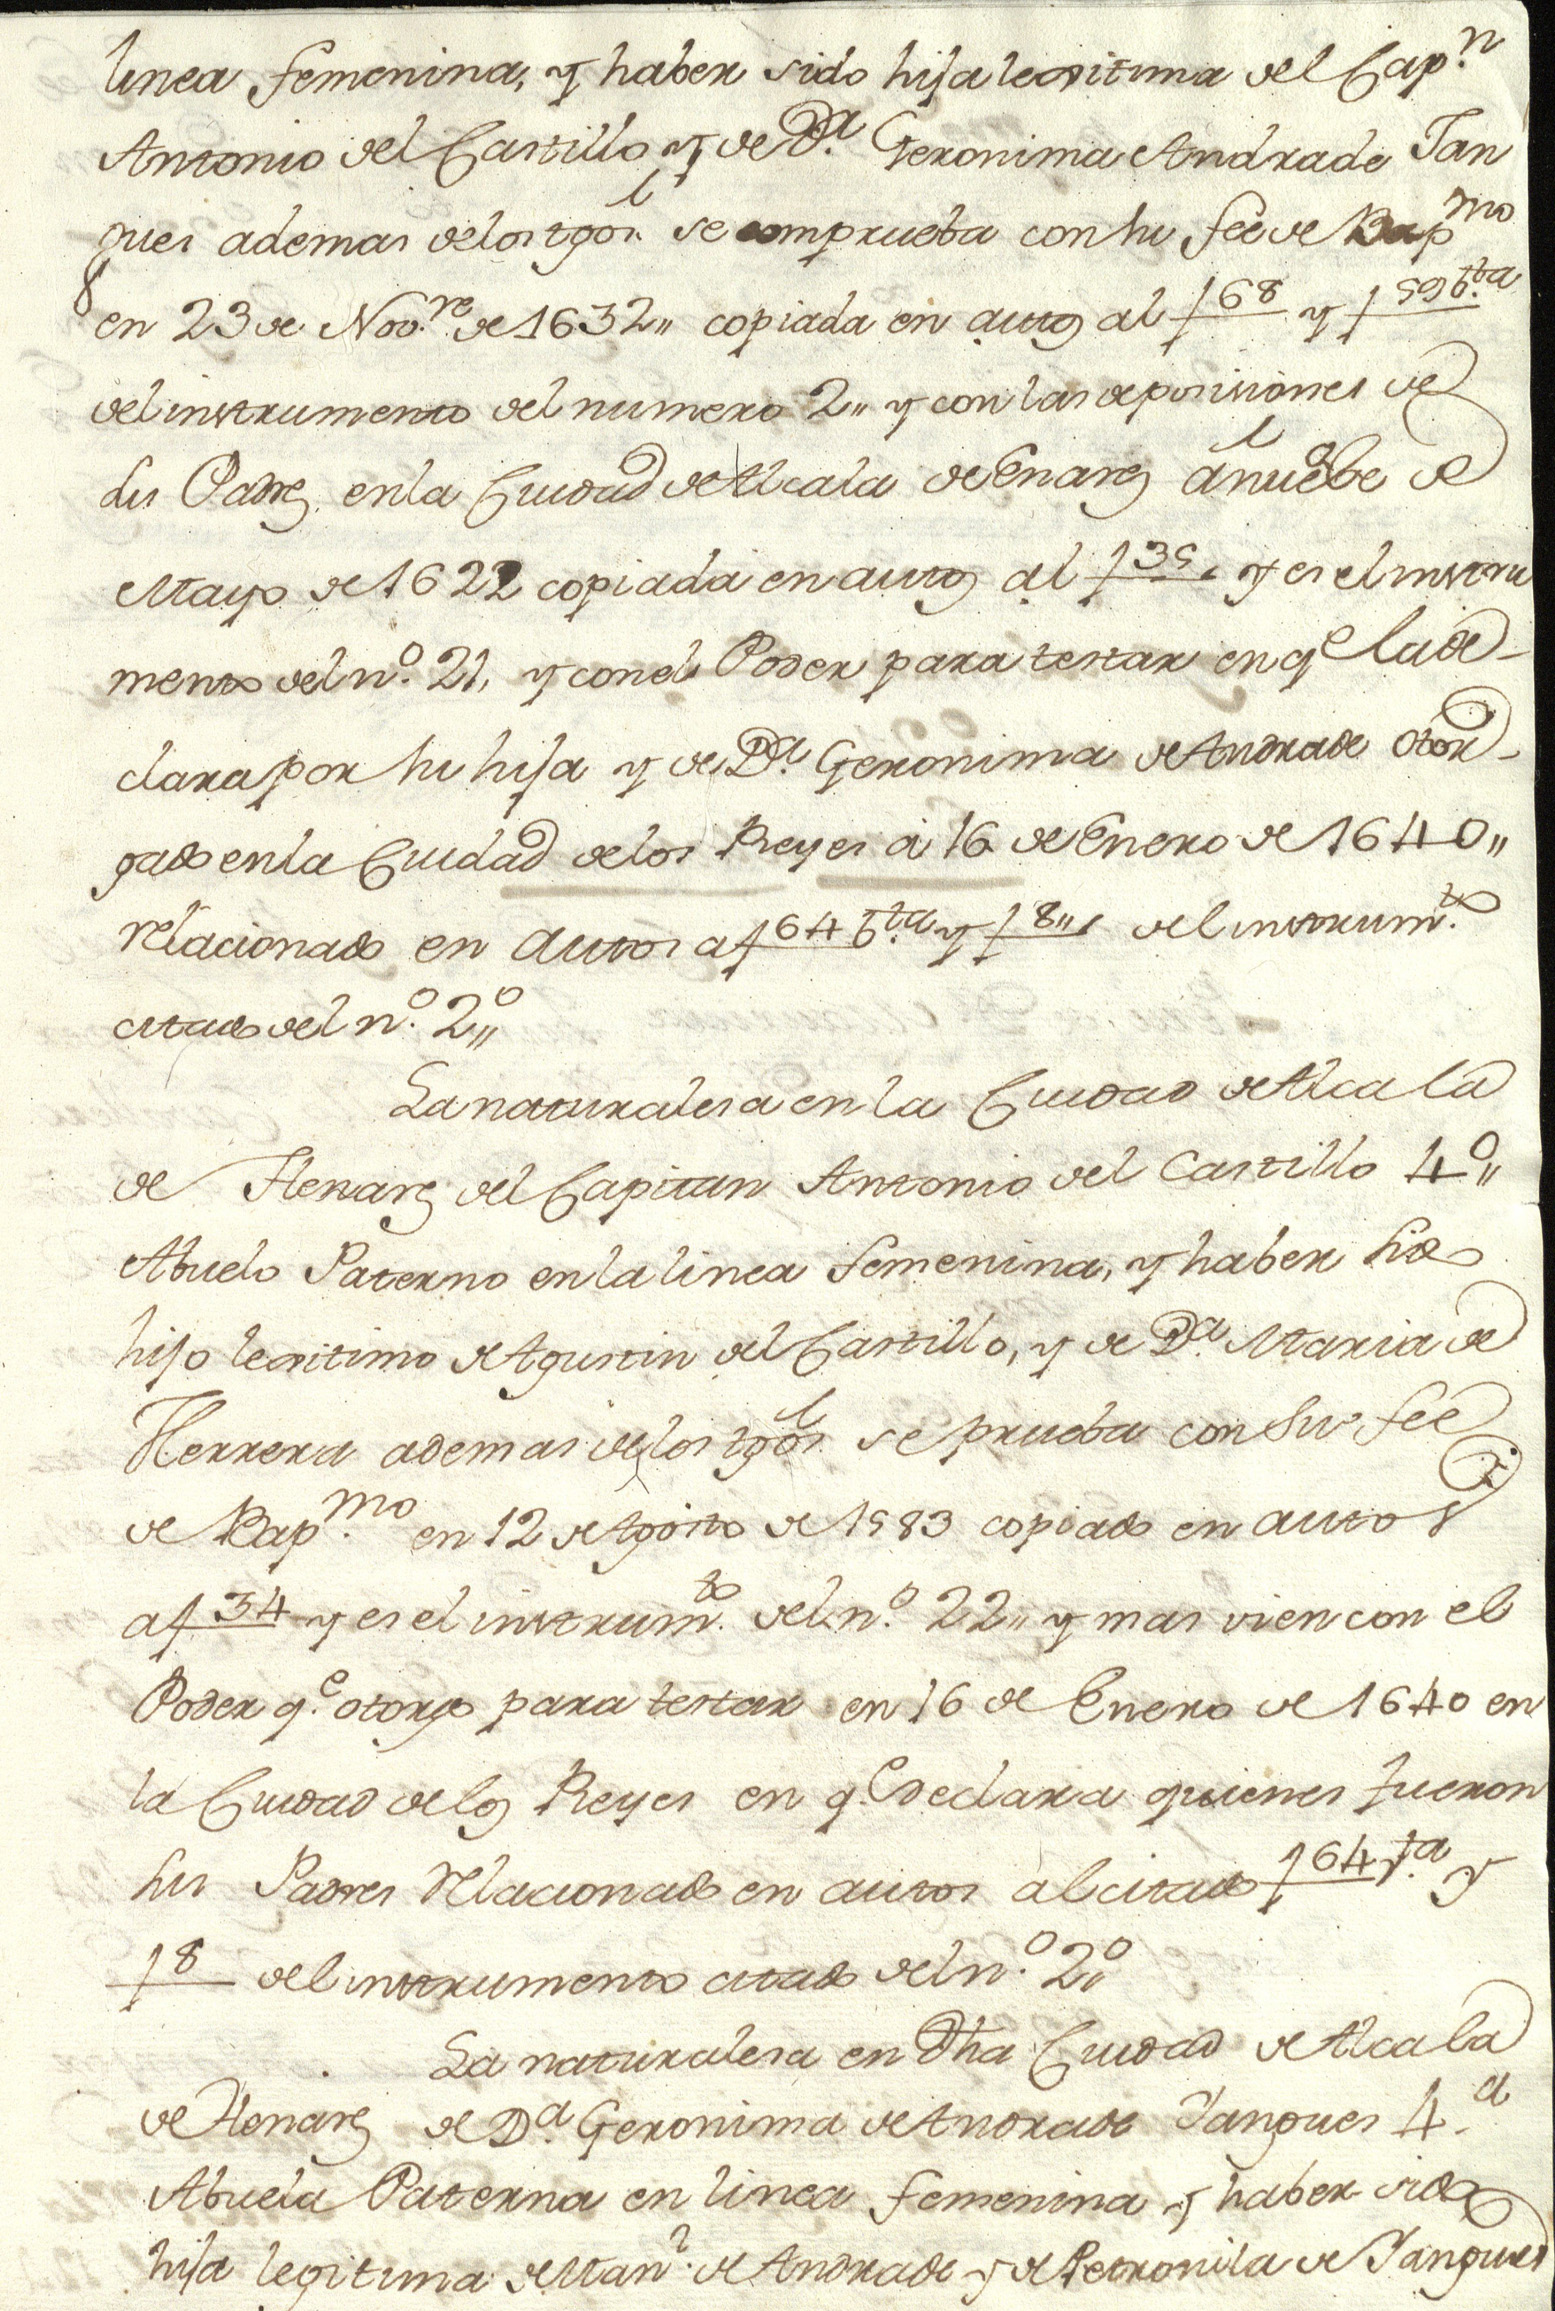 linea femenina, y haber sido hija legitima del Cap.n
Antonio del Castillo y de D.a Geronima Andrade Tan
gues ademas de los tgos. se comprueba con su feè de Bapmo
en 23 de Nov.re de 1632,, copiada en autos al f 68 y f 59 bta
del instrumento del numero 2,, y con las deposiciones de
sus Padres en la Ciudad de Alcala de Enares á nuebe de
Mayo de 1622 copiada en autos al f 35 y es el instru
mento del n.o 21, y con el Poder para testar en qe la de-
clara por su hija y de D.a Geronima de Andrade otor-
gado en la Ciudad de los Reyes á 16 de Enero de 1640,,
relacionado en autos a f 64 bta y f 8,, del instrum.to
citado del n.o 2o,,
La naturalesa en la Ciudad de Alcala
de Henares del Capitan Antonio del Castillo 4o,,
Abuelo Paterno en la linea femenina, y haber sido
hijo legitimo de Agustin del Castillo, y de D.a Maria de
Herrera ademas de los tgos. se prueba con su feè
de Bap.mo en 12 de Agosto de 1583 copiado en autos
a f 34 y es el instrum.to del n.o 22,, y mas vien con el
Poder q.e otorgo para testar en 16 de Enero de 1640 en
la Ciudad de los Reyes en q.e declara quienes fueron
sus Padres relacionado en autos al citado f 64 v.ta y
f 8 del instrumento citado del n.o 2o,,
La naturalesa en dha Ciudad de Alcala
de Henares de D.a Geronima de Andrade Tangues 4.a
Abuela Paterna en linea femenina y haber sido
hija legitima de Man.l de Andrade y de Petronila de Tangues